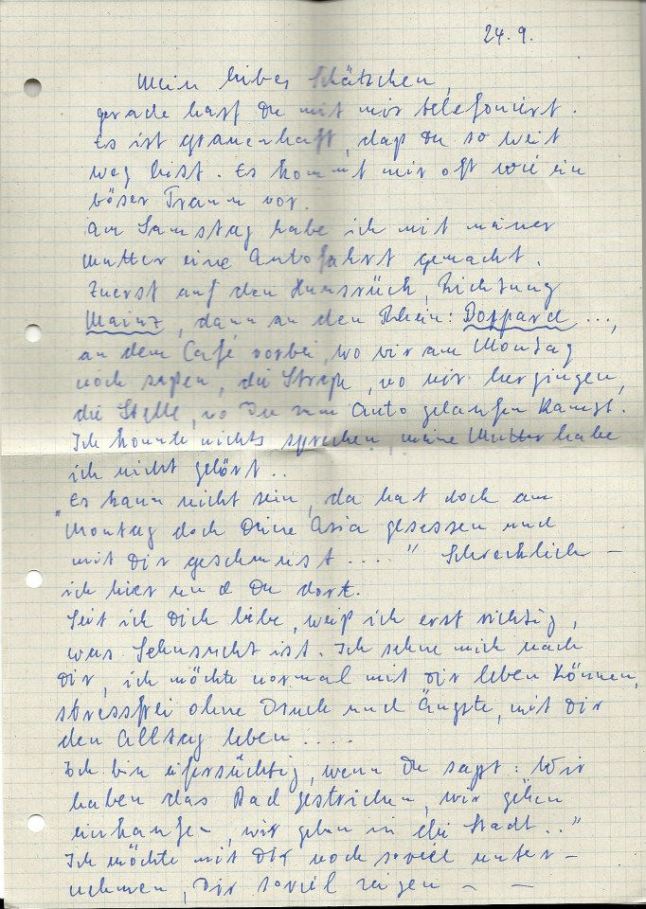 24.9.
Mein liebes Schätzchen,
gerade hast Du mit mir telefoniert.
Es ist grauenhaft, daß Du so weit
weg bist. Es kommt mir oft wie ein
böser Traum vor.
Am Samstag habe ich mit meiner
Mutter eine Autofahrt gemacht.
Zuerst auf den Hunsrück, Richtung
Mainz, dann an den Rhein: Boppard ...,
an dem Café vorbei, wo wir am Montag
noch saßen, die Straße, wo wir hergingen,
die Stelle, wo Du zum Auto gelaufen kamst.
Ich konnte nichts sprechen, meine Mutter habe
ich nicht gehört..
"Es kann nicht sein, da hat doch am
Montag doch Deine Asia gesessen und
mit Dir geschmust ...." Schrecklich –
ich hier und Du dort.
Seit ich Dich liebe, weiß ich erst richtig,
was Sehnsucht ist. Ich sehne mich nach
Dir, ich möchte normal mit Dir leben können,
stressfrei ohne Druck und Ängste, mit Dir
den Alltag leben ....
Ich bin eifersüchtig, wenn Du sagst: Wir
haben das Bad gestrichen, wir gehen
einkaufen, wir gehen in die Stadt.."
Ich möchte mit Dir noch soviel unter-
nehmen, Dir soviel zeigen – –